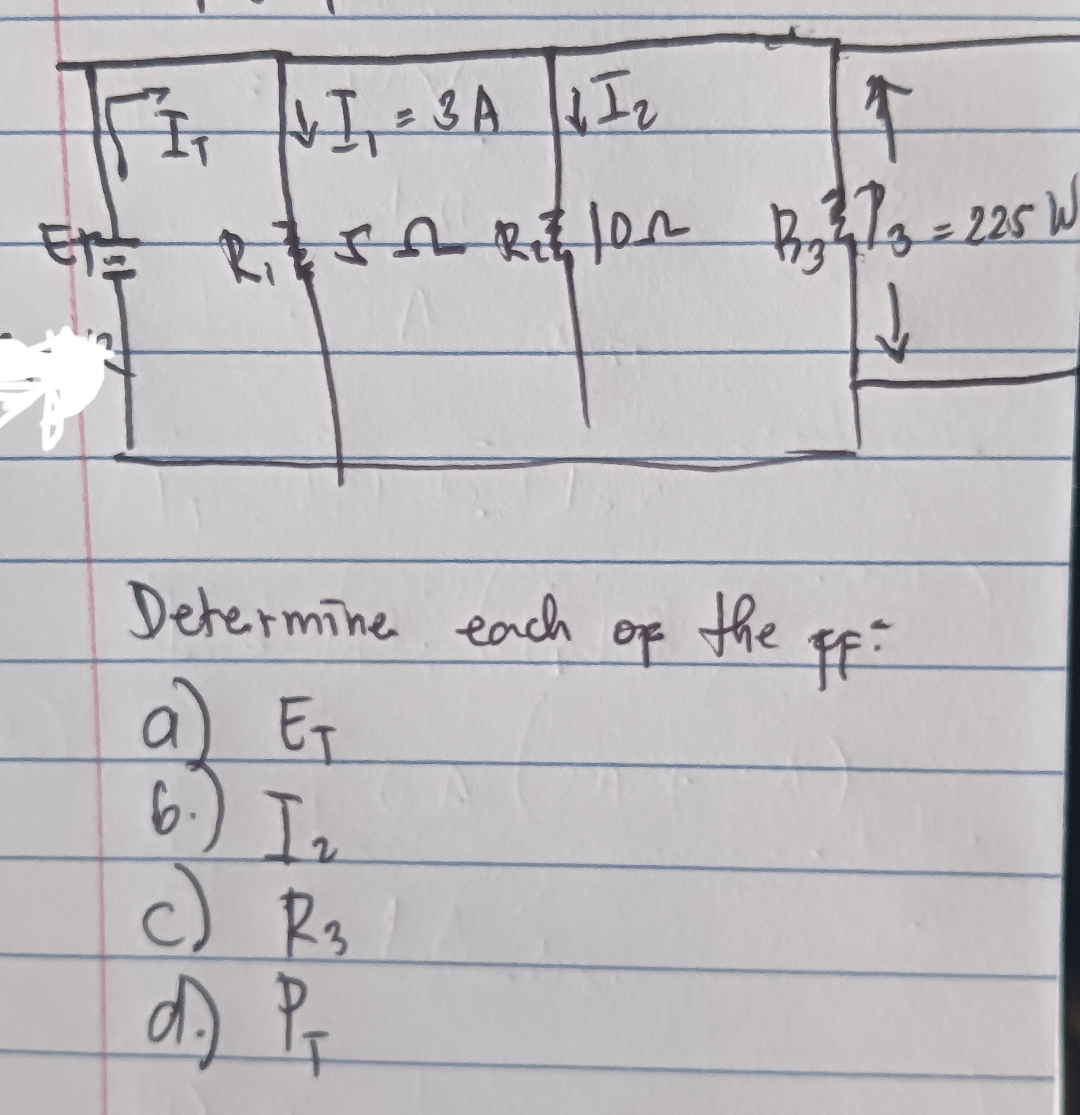 I_T I₁ = 3A I₂
E_T R₁ 5 Ω R₂ 10Ω R₃ P₃ = 225 W
Determine each of the ff:
a) E_T
b.) I₂
c) R₃
d.) P_T